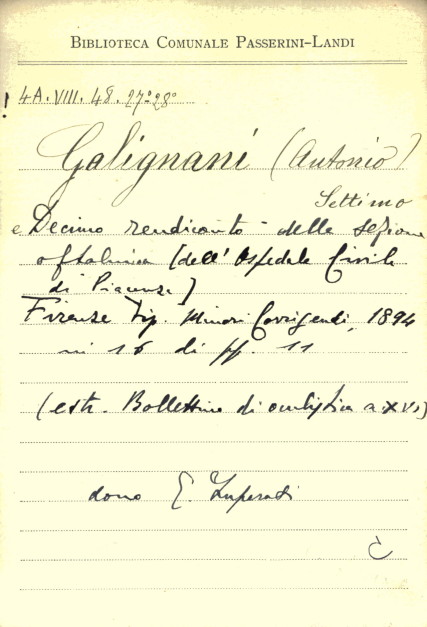 BIBLIOTECA COMUNALE PASSERINI-LANDI
4A. VIII. 48. 27° 28°
Galignani (Antonio)
Settimo
e Decimo rendiconto delle sezione
oftalmica [dell' Ospedale Civile
di Piacenza]
Firenze Tip. Minori Corrigendi, 1894
in 16 di pp. 11
(estr. Bollettino di oculistica a. XVI)
dono E.